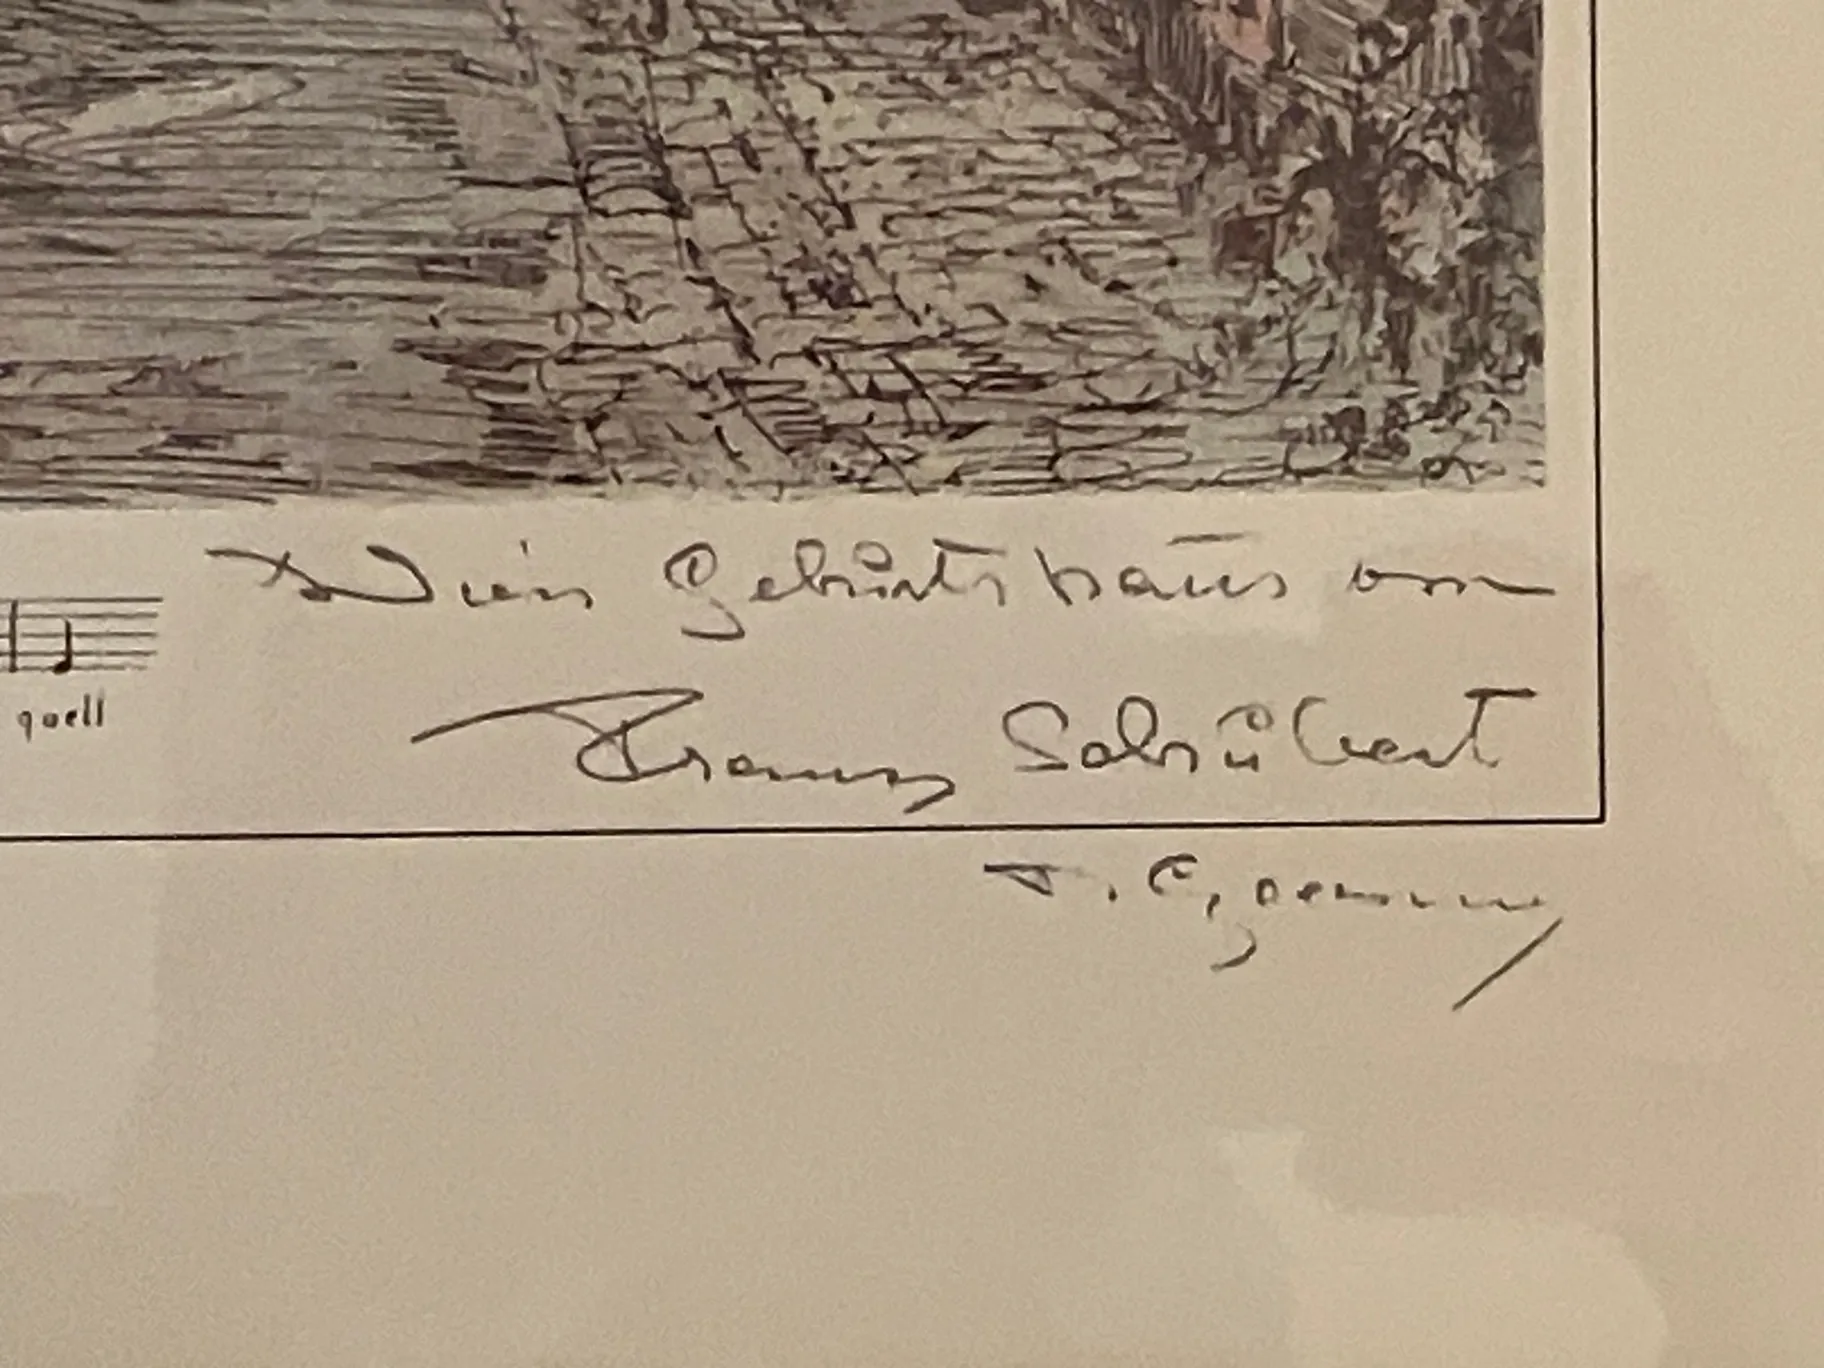 Wien Geburtshaus von
quell
Franz Schubert